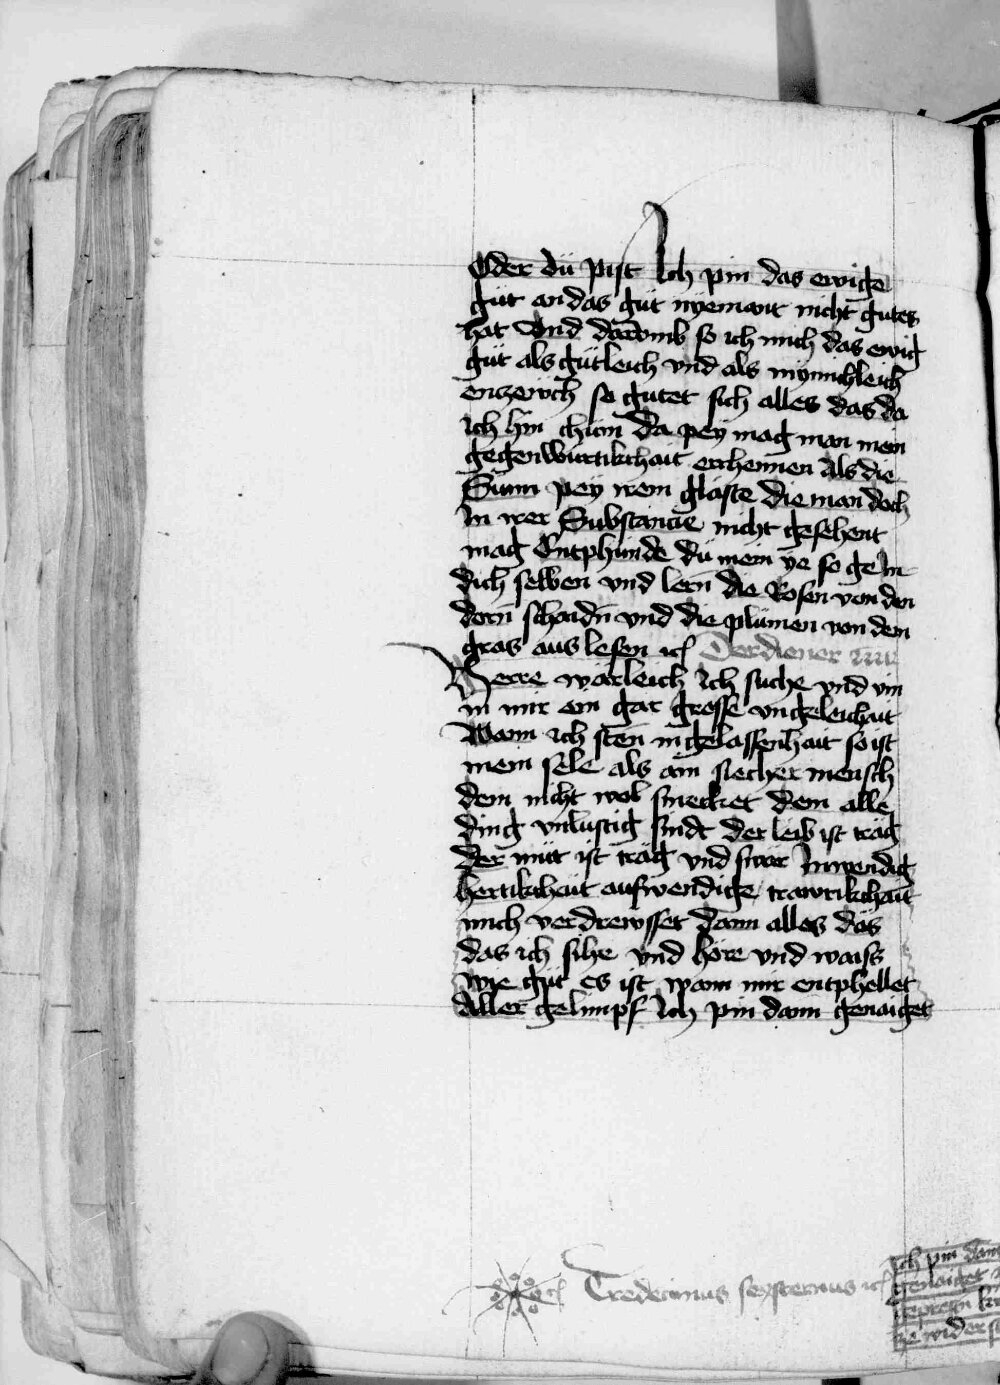 Oder dü pist Ich pin das ewige
güt an das güt nyemant nicht gutes
hat Vnd darvmb so ich mich das ewig
güt als gütleich vnd als mynnichleich
enzewch so gutet sich alles das da
ich hin chüm da pey mag man mein
gegenwürtikchait erchennen Als die
Sunn pey irem glaste die man doch
In irer Substancie nicht gesehent
mag Entphinde dü mein ye so ge In
dich selben vnd lern die Rosen von den
dorn schaidn vnd die plümen von dem
gras aus lesen ich Der diener
Herre wärleich Ich suche vnd vin
in mir ein gar grosse vngeleichait
Wann ich sten in gelassenhait so ist
mein sele als ain siecher mensch
dem nicht wol smecket dem alle
ding vnlustig sindt der leib ist träg
der müt ist träg vnd swär Inwendig
hertikchait auswendige trawrikchait
mich verdrewsset dann alles das
das ich sihe vnd höre vnd waiss
wie güt es ist wann mir entphellet
Aller gelimpf Ich pin dann genaiget
Tredecimus sexternus
ich pin dann
genaiget
gepresten
ze widerst